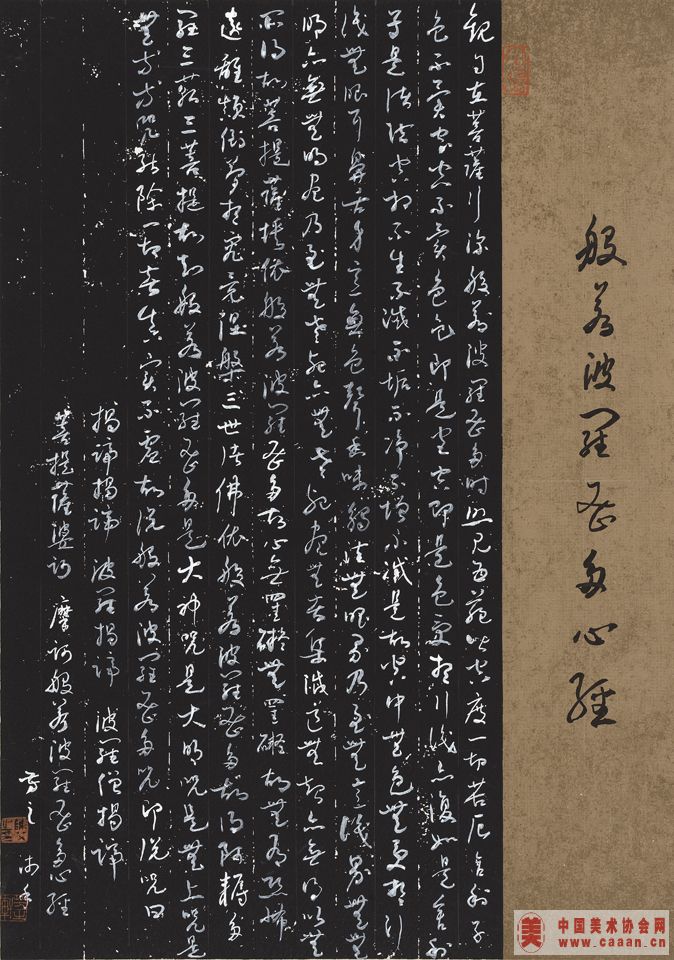 般若波羅蜜多心經
觀自在菩薩行深般若波羅蜜多時照見五蘊皆空度一切苦厄舍利子
色不異空空不異色色即是空空即是色受想行識亦復如是舍利
子是諸法空相不生不滅不垢不淨不增不減是故空中無色無受想行
識無眼耳鼻舌身意無色聲香味觸法無眼界乃至無意識界無無
明亦無無明盡乃至無老死亦無老死盡無苦集滅道無智亦無得以無
所得故菩提薩埵依般若波羅蜜多故心無罣礙無罣礙故無有恐怖
遠離顛倒夢想究竟涅槃三世諸佛依般若波羅蜜多故得阿耨多
羅三藐三菩提故知般若波羅蜜多是大神咒是大明咒是無上咒是
無等等咒能除一切苦真實不虛故說般若波羅蜜多咒即說咒曰
揭諦揭諦 波羅揭諦 波羅僧揭諦
菩提薩婆訶 摩訶般若波羅蜜多心經
美 中国美术协会网
www.caaan.cn